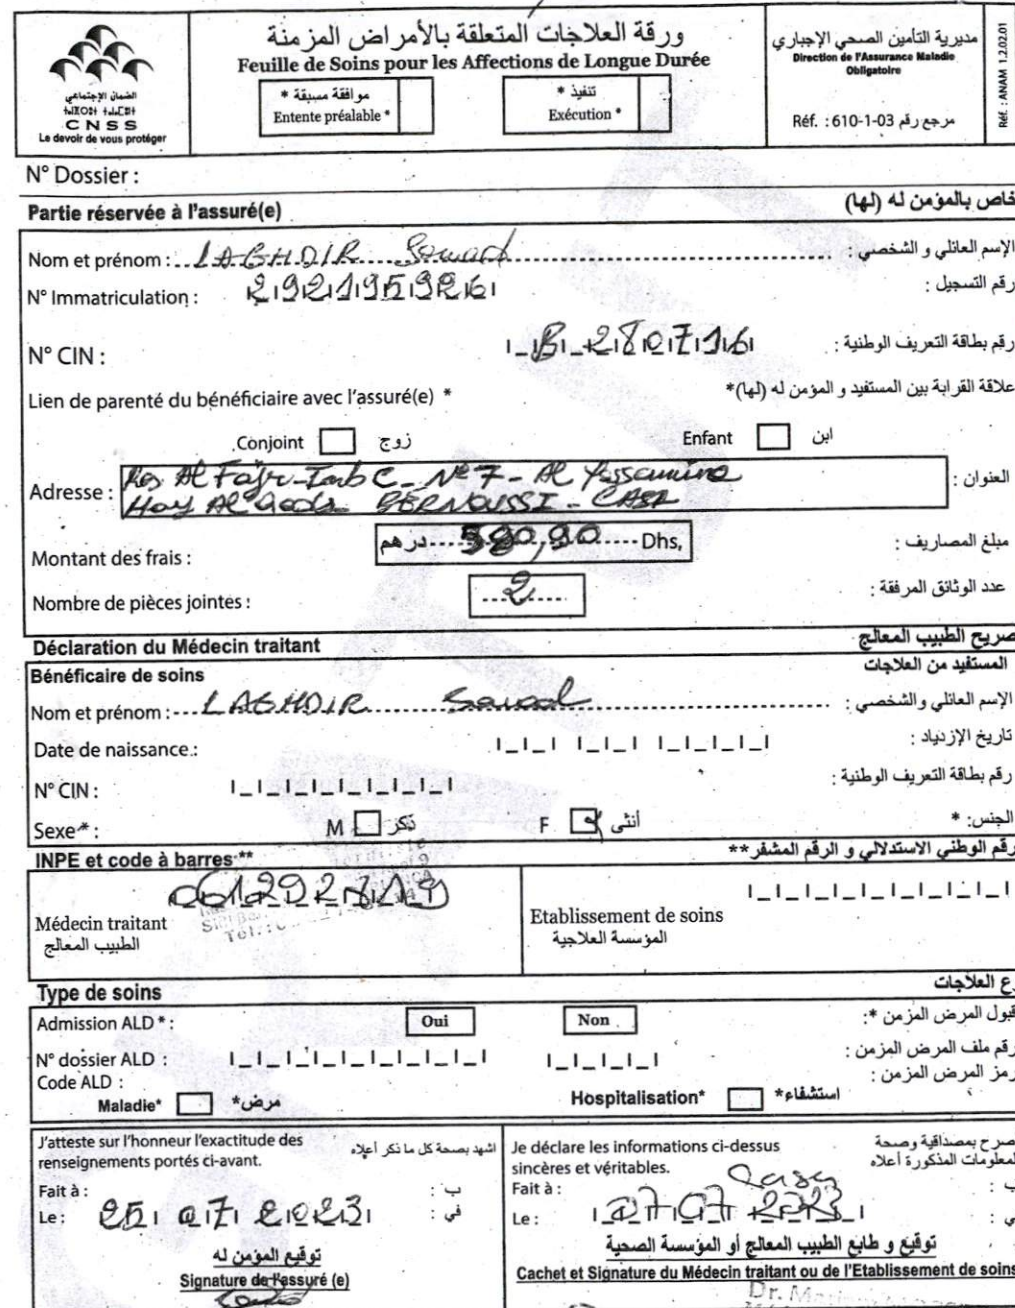 ورقة العلاجات المتعلقة بالأمراض المزمنة
Feuille de Soins pour les Affections de Longue Durée
موافقة مسبقة *
Entente préalable *
تنفيذ *
Exécution *
مديرية التأمين الصحي الإجباري
Direction de l'Assurance Maladie
Obligatoire
Réf. : 610-1-03 مرجع رقم
Réf. : ANAM 1.2.02.01
الضمان الإجتماعي
CNSS
Le devoir de vous protéger
N° Dossier :
Partie réservée à l'assuré(e) خاص بالمؤمن له (لها)
Nom et prénom : LAGHDIR Souad الإسم العائلي و الشخصي :
N° Immatriculation : 292195926 رقم التسجيل :
N° CIN : B 280716 رقم بطاقة التعريف الوطنية :
Lien de parenté du bénéficiaire avec l'assuré(e) * علاقة القرابة بين المستفيد و المؤمن له (لها)*
Conjoint زوج Enfant ابن
Adresse : Res Al Fajr-Imb C-N°7-Al Yassamine العنوان :
Hay Al Qods BERNOUSSI-CASA
Montant des frais : درهم 580,90 Dhs, مبلغ المصاريف :
Nombre de pièces jointes : 2 عدد الوثائق المرفقة :
Déclaration du Médecin traitant صريح الطبيب المعالج
Bénéficaire de soins المستفيد من العلاجات
Nom et prénom : LAGHDIR Souad الإسم العائلي والشخصي :
Date de naissance : تاريخ الإزدياد :
N° CIN : رقم بطاقة التعريف الوطنية :
Sexe* : M ذكر F أنثى الجنس: *
INPE et code à barres ** رقم الوطني الاستدلالي و الرقم المشفر**
Médecin traitant
الطبيب المعالج
Etablissement de soins
المؤسسة العلاجية
Type de soins ع العلاجات
Admission ALD * : Oui Non قبول المرض المزمن *:
N° dossier ALD : رقم ملف المرض المزمن :
Code ALD : رمز المرض المزمن :
Maladie* مرض* Hospitalisation* استشفاء*
J'atteste sur l'honneur l'exactitude des
renseignements portés ci-avant.
اشهد بصحة كل ما ذكر أعلاه
Fait à : ب :
Le : 25 07 2023 في :
توقيع المؤمن له
Signature de l'assuré (e)
Je déclare les informations ci-dessus
sincères et véritables.
صرح بمصداقية وصحة
لمعلومات المذكورة أعلاه
Fait à : Casa ب :
Le : 07 07 2023 ي :
توقيع و طابع الطبيب المعالج أو المؤسسة الصحية
Cachet et Signature du Médecin traitant ou de l'Etablissement de soins